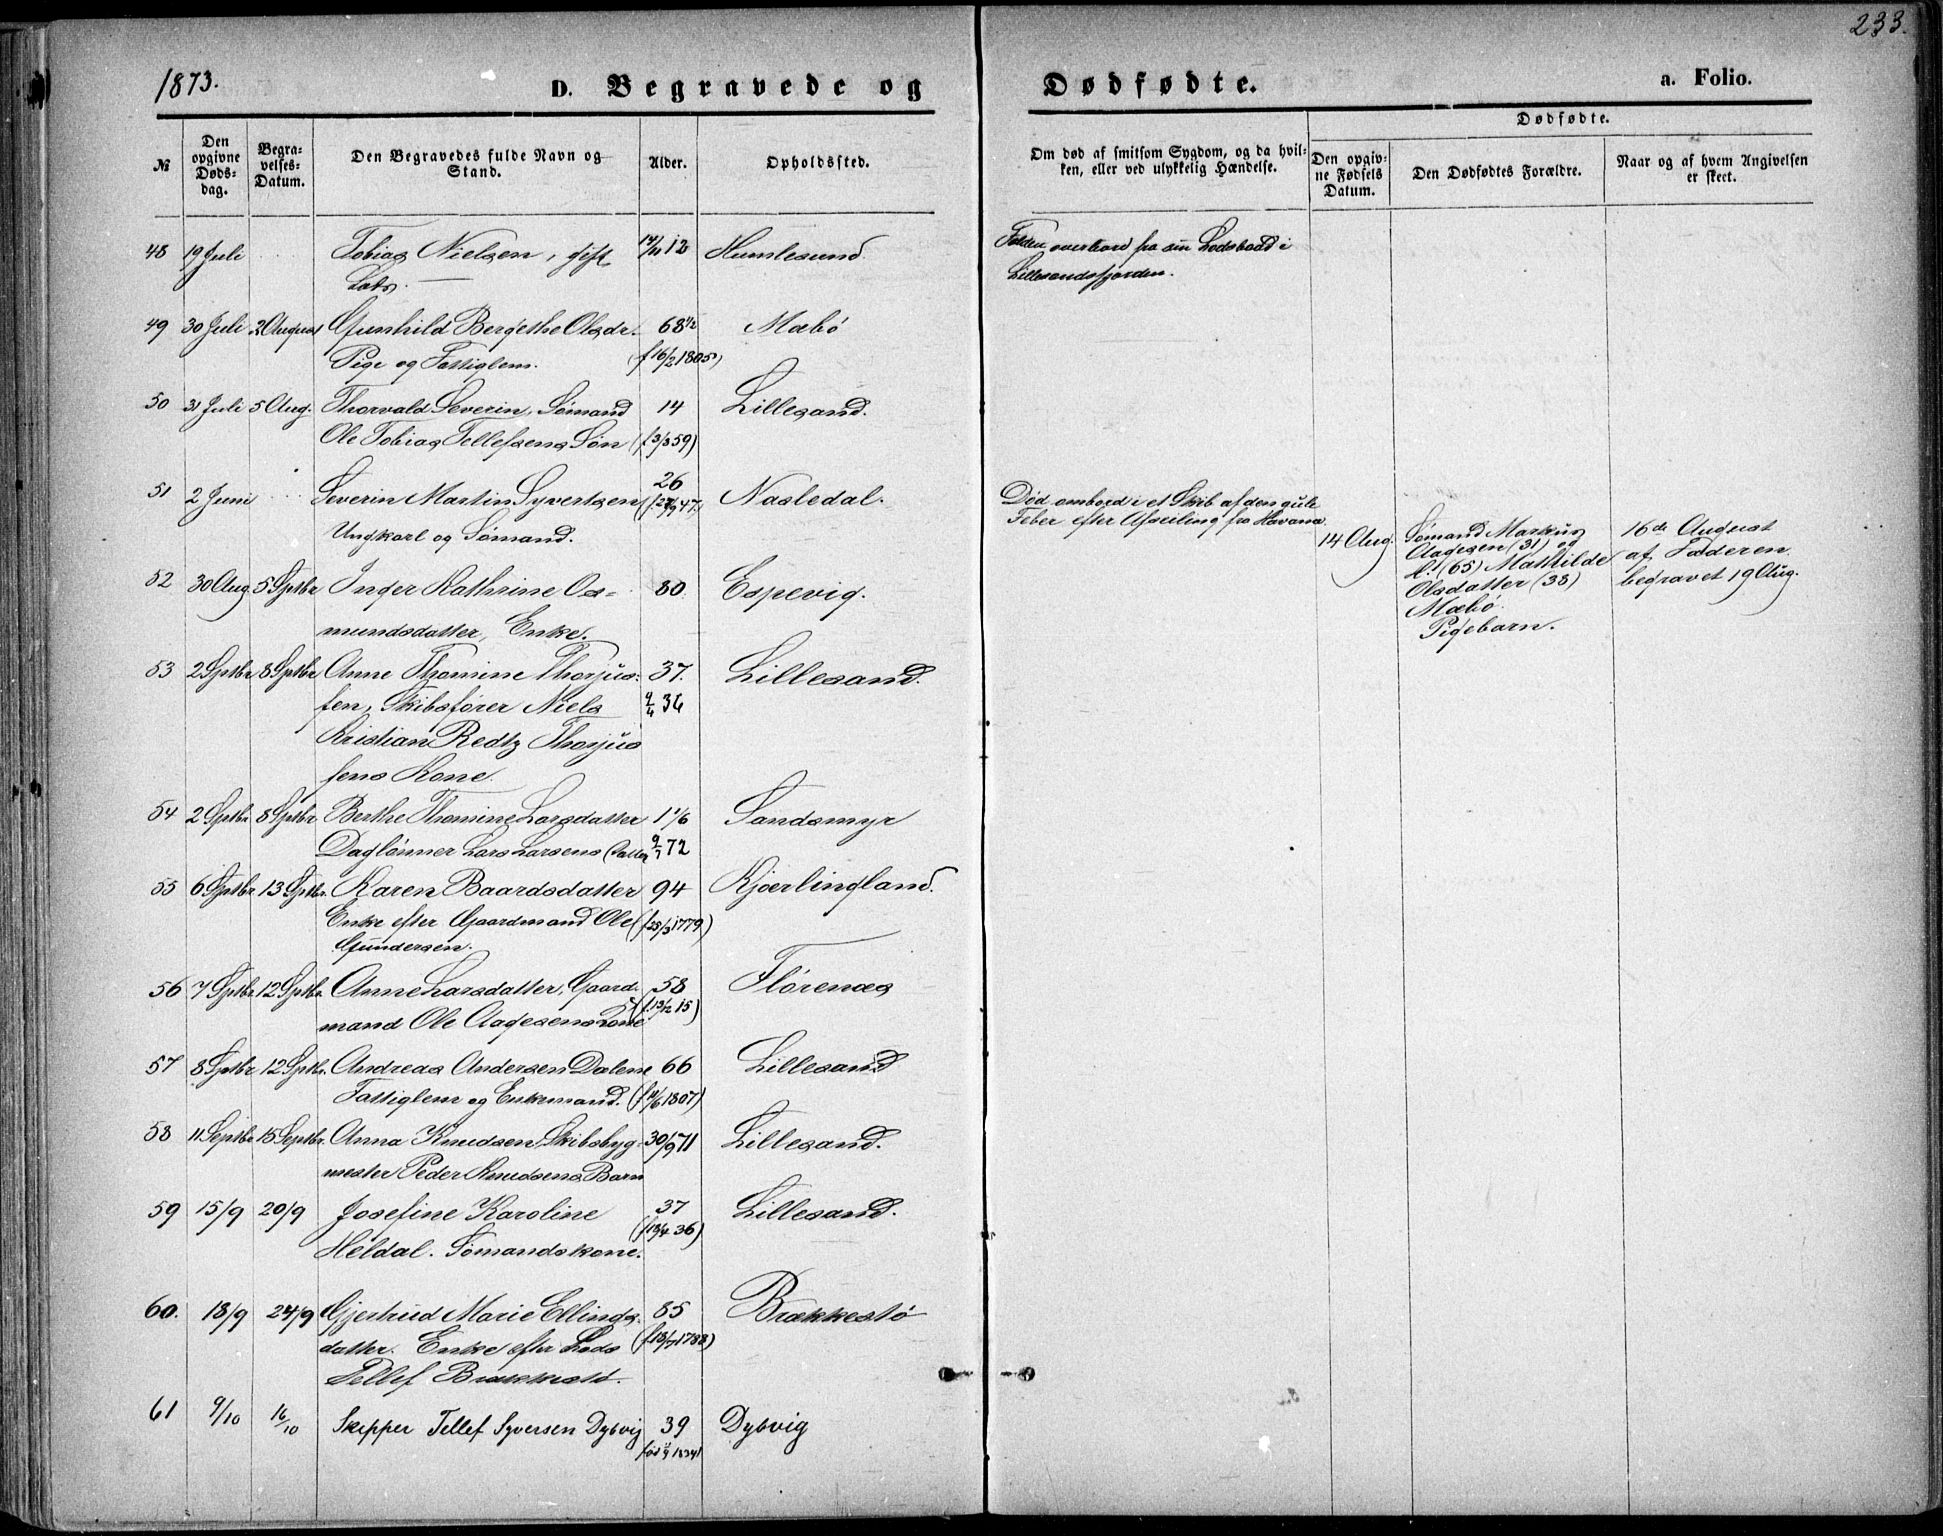 233.
1873.
D. Begravede og Dødfødte.
a. Folio.
№
Den opgivne Døds-dag.
Begra-velses-Datum.
Den Begravedes fulde Navn og Stand.
Alder.
Opholdssted.
Om død af smitsom Sygdom, og da hvil-ken, eller ved ulykkelig Hændelse.
Dødfødte.
Den opgiv-ne Fødsels Datum.
Den Dødfødtes Forældre.
Naar og af hvem Angivelsen er skeet.
48 19 Juli Tobias Nielsen, gift 12 Humlesund. Falden overbord fra sin Lodsbaad i
Lods. Lillesandsfjorden.
49 30 Juli 2 August Gunhild Bergethe Olsdr. 68 1/2 Mæbø
Pige og Fattiglem. (f 16/2 1805)
50 31 Juli 5 Aug. Thorvald Severin, Sømand 14 Lillesand.
Ole Tobias Tellefsens Søn (f 3/3 59)
51 2 Juni Severin Martin Syvertsen 26 Nasledal. Død ombord i et Skib af den gule
Ungkarl og Sømand. Feber efter Afseiling fra Havana.
14 Aug. Sømand Markus
Aagesen (31) og
(65) Mathilde
Olsdatter (38)
Mæbø.
Pigebarn.
16de August
af Faderen.
begravet 19 Aug.
52 30 Aug. 5 Sptbr Inger Kathrine Os= 80 Espevig.
mundsdatter, Enke.
53 2 Sptbr 8 Sptbr Anne Thomine Thorjus= 37. Lillesand.
sen, Skibsfører Niels 9/4 36
Kristian Redtz Thorjus
sens Kone.
54 2 Sptbr 8 Sptbr. Berthe Thomine Larsdatter 1 1/6 Sandsmyr
Daglønner Lars Larsens Datter 9/7 72
55 6 Sptbr 13 Sptbr. Karen Baardsdatter 94 Kjærlingland.
Enke efter Gaardmand Ole (f 25/3 1779)
Gundersen.
56 7 Sptbr 12 Sptbr. Anne Larsdatter, Gaard- 58 Florenæs
mand Ole Aagesens Kone (f. 13/12 15)
57 8 Sptbr 12 Sptbr. Andreas Andersen Dalene 66 Lillesand
Fattiglem og Enkemand. (f 11/6 1807)
58 11 Septbr 15 Septbr. Anna Knudsen, Skibsbyg= 30/9 71 Lillesand.
mester Peder Knudsens Barn
59 15/9 20/9 Josefine Karoline 37 Lillesand.
Heldal. Sømandskone. (f 13/4 36)
60. 18/9 24/9 Gjertrud Marie Ellings- 85 Brækkestø
datter. Enke efter Lods (f 18/7 1788)
Tellef Brækkestø.
61 9/10 16/10 Skipper Tellef Syversen Dybvig 39 Dybvig